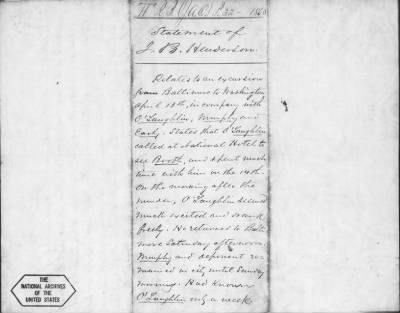 R.B. (J.A.O.) P. 32 - 1865
Statement of
J. B. Henderson.
Relates to an excursion
from Baltimore to Washington
April 13th, in company with
O'Laughlin, Murphy and
Early. States that O'Laughlin
called at National Hotel to
see Booth, and spent much
time with him on the 14th.
On the morning after the
murder, O'Laughlin seemed
much excited and drank
freely. He returned to Balti-
more Saturday afternoon.
Murphy and deponent re-
mained in city until Sunday
morning. Had known
O'Laughlin only a week
THE
NATIONAL ARCHIVES
OF THE
UNITED STATES